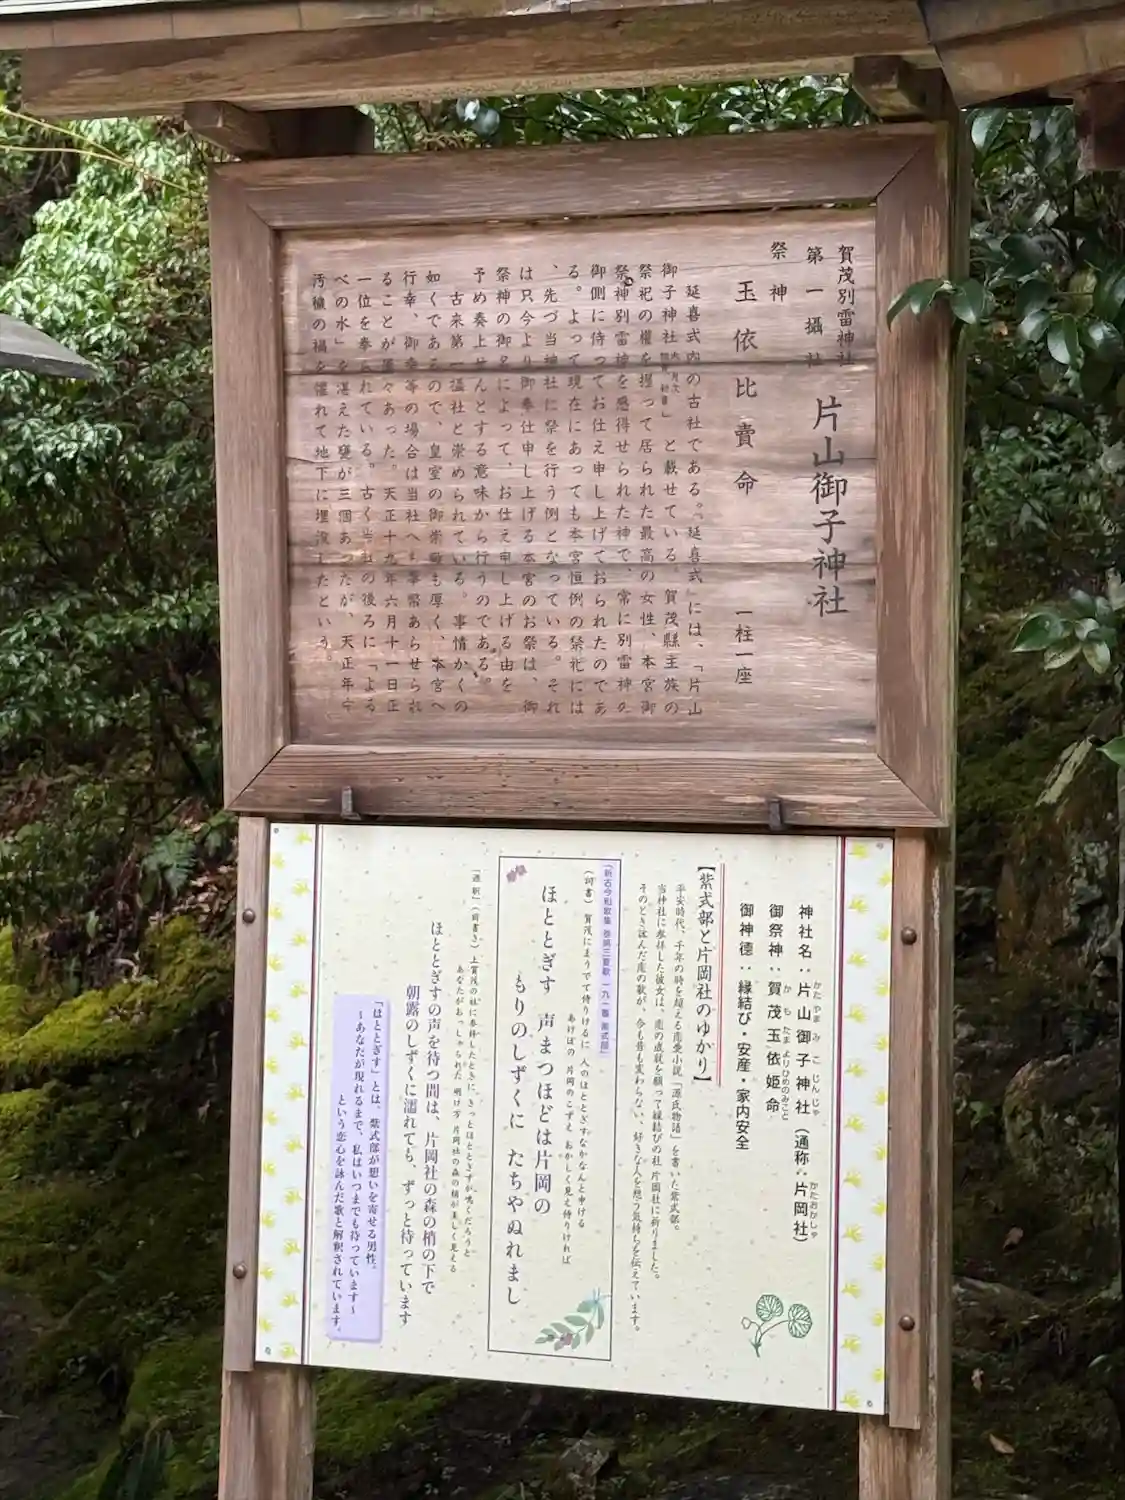 賀茂別雷神社
第一攝社
片山御子神社
祭神
玉依比賣命 一柱一座
延喜式内の古社である。『延喜式』には、「片山
御子神社」と載せている。賀茂縣主族の
祭祀の權を握って居られた最高の女性、本宮御
祭神別雷神を感得せられた神で、常に別雷神の
御側に侍ってお仕え申し上げておられたのであ
る。よって現在にあっても本宮恒例の祭祀には
、先づ当神社に祭を行う例となっている。それ
は只今より御奉仕申し上げる本宮のお祭は、御
祭神の御名によって、お仕え申し上げる由を
予め奏上せんとする意味から行うのである。
古来第一攝社と崇められている。事情かくの
如くであるので、皇室の御崇敬も厚く、本宮へ
行幸、御幸等の場合は当社へも奉幣あらせられ
ることが屢々あった。天正十九年六月十一日正
一位を奉られている。古く当社の後ろに「よる
べの水」を湛えた甕が三個あったが、天正年中
汚穢の禍を懼れて地下に埋没したという。
神社名：片山御子神社（通称：片岡社）
かたやまみこじんじゃ
かたおかしゃ
御祭神：賀茂玉依姫命
かもたまよりひめのみこと
御神徳：縁結び・安産・家内安全
【紫式部と片岡社のゆかり】
平安時代、千年の時を超える恋愛小説「源氏物語」を書いた紫式部。
当神社に参拝した彼女は、恋の成就を願って縁結びの社 片岡社に祈りました。
そのとき詠んだ恋の歌が、今も昔も変わらない、好きな人を想う気持ちを伝えています。
「新古今和歌集 巻第三夏歌 一九一番 紫式部」
（詞書）賀茂にまうでて侍りけるに 人のほととぎすなかなんと申ける
あけぼの 片岡のこずえ おかしく見え侍りければ
ほととぎす 声まつほどは片岡の
もりのしずくに たちやぬれまし
（前書き）上賀茂の社に参拝したときに、きっとほととぎすが鳴くだろうと
あなたがおっしゃられた 明け方 片岡社の森の梢が美しく見える
ほととぎすの声を待つ間は、片岡社の森の梢の下で
朝露のしずくに濡れても、ずっと待っています
「ほととぎす」とは、紫式部が想いを寄せる男性。
～あなたが現れるまで、私はいつまでも待っています～
という恋心を詠んだ歌と解釈されています。